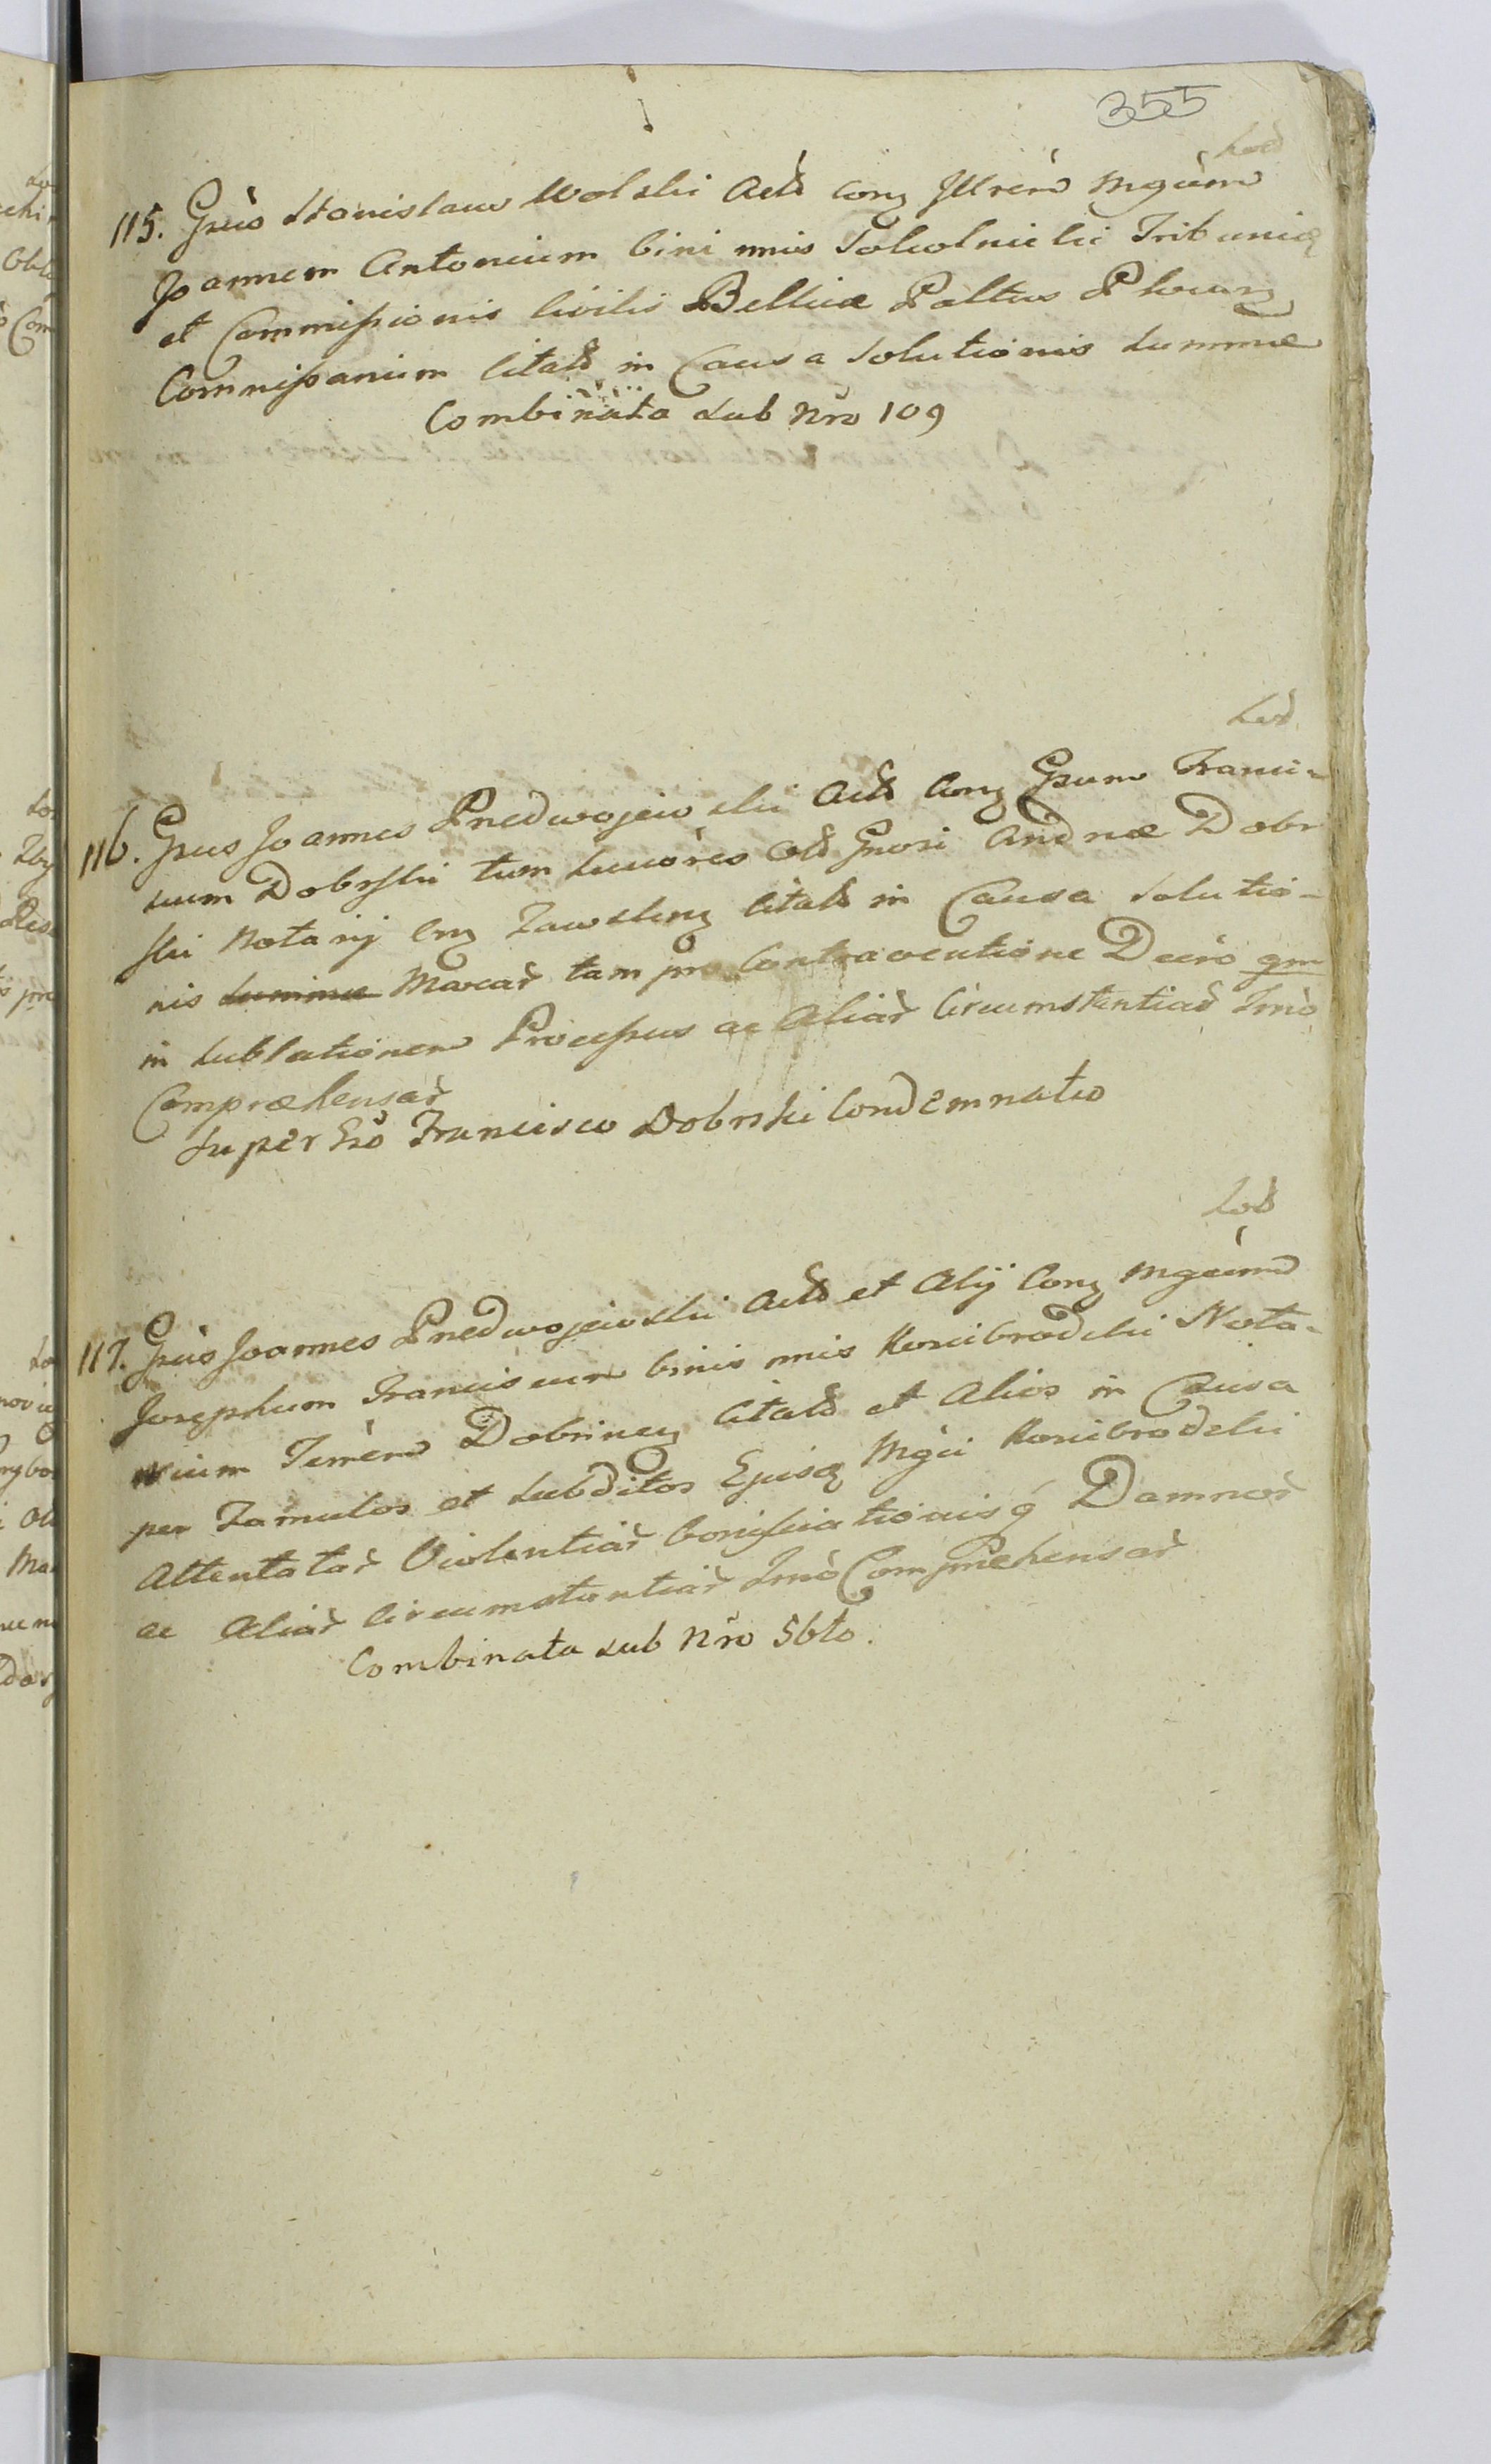 355
115. Gsus Stanislaus Wolski Actð Conz Illrem Mgcum
Joannem Antonium bini nnis Sokolnicki Tribunia
et Commissionis Civilis Bellicæ Paltus Plocen
Commissarium Citatð in Causa Solutionis Summæ
Combinata sub Nro 109
116. Gsus Joannes Przedwojewski Actð Conz Gsum Franci-
scum Dobrski tum Succres olð Gnosi Andreæ Dobr
ski Notarij Citatð in Causa Solutio-
nis Summæ Marcar tam pro Contraventione Decro qm
in Sublationem Processus ac Aliar Circumstantiar Trno
Compræhensar
Super Gso Francisco Dobrski Condemnatio
117. Gsus Joannes Przedwojewski Actð et Alij Conz Mgcum
Josephum Franciscum binis nnis Konibrodzki Nota-
rium Terrem Dobrinen Citatð et Alios in Causa
per Famulos et Subditos Ejusq Mgci Konibrodzki
Attentatar Violentiar Bonificationisq Damnor
ac Aliar Circumstantiar Trno Compræhensar
Combinata sub Nro 56to.